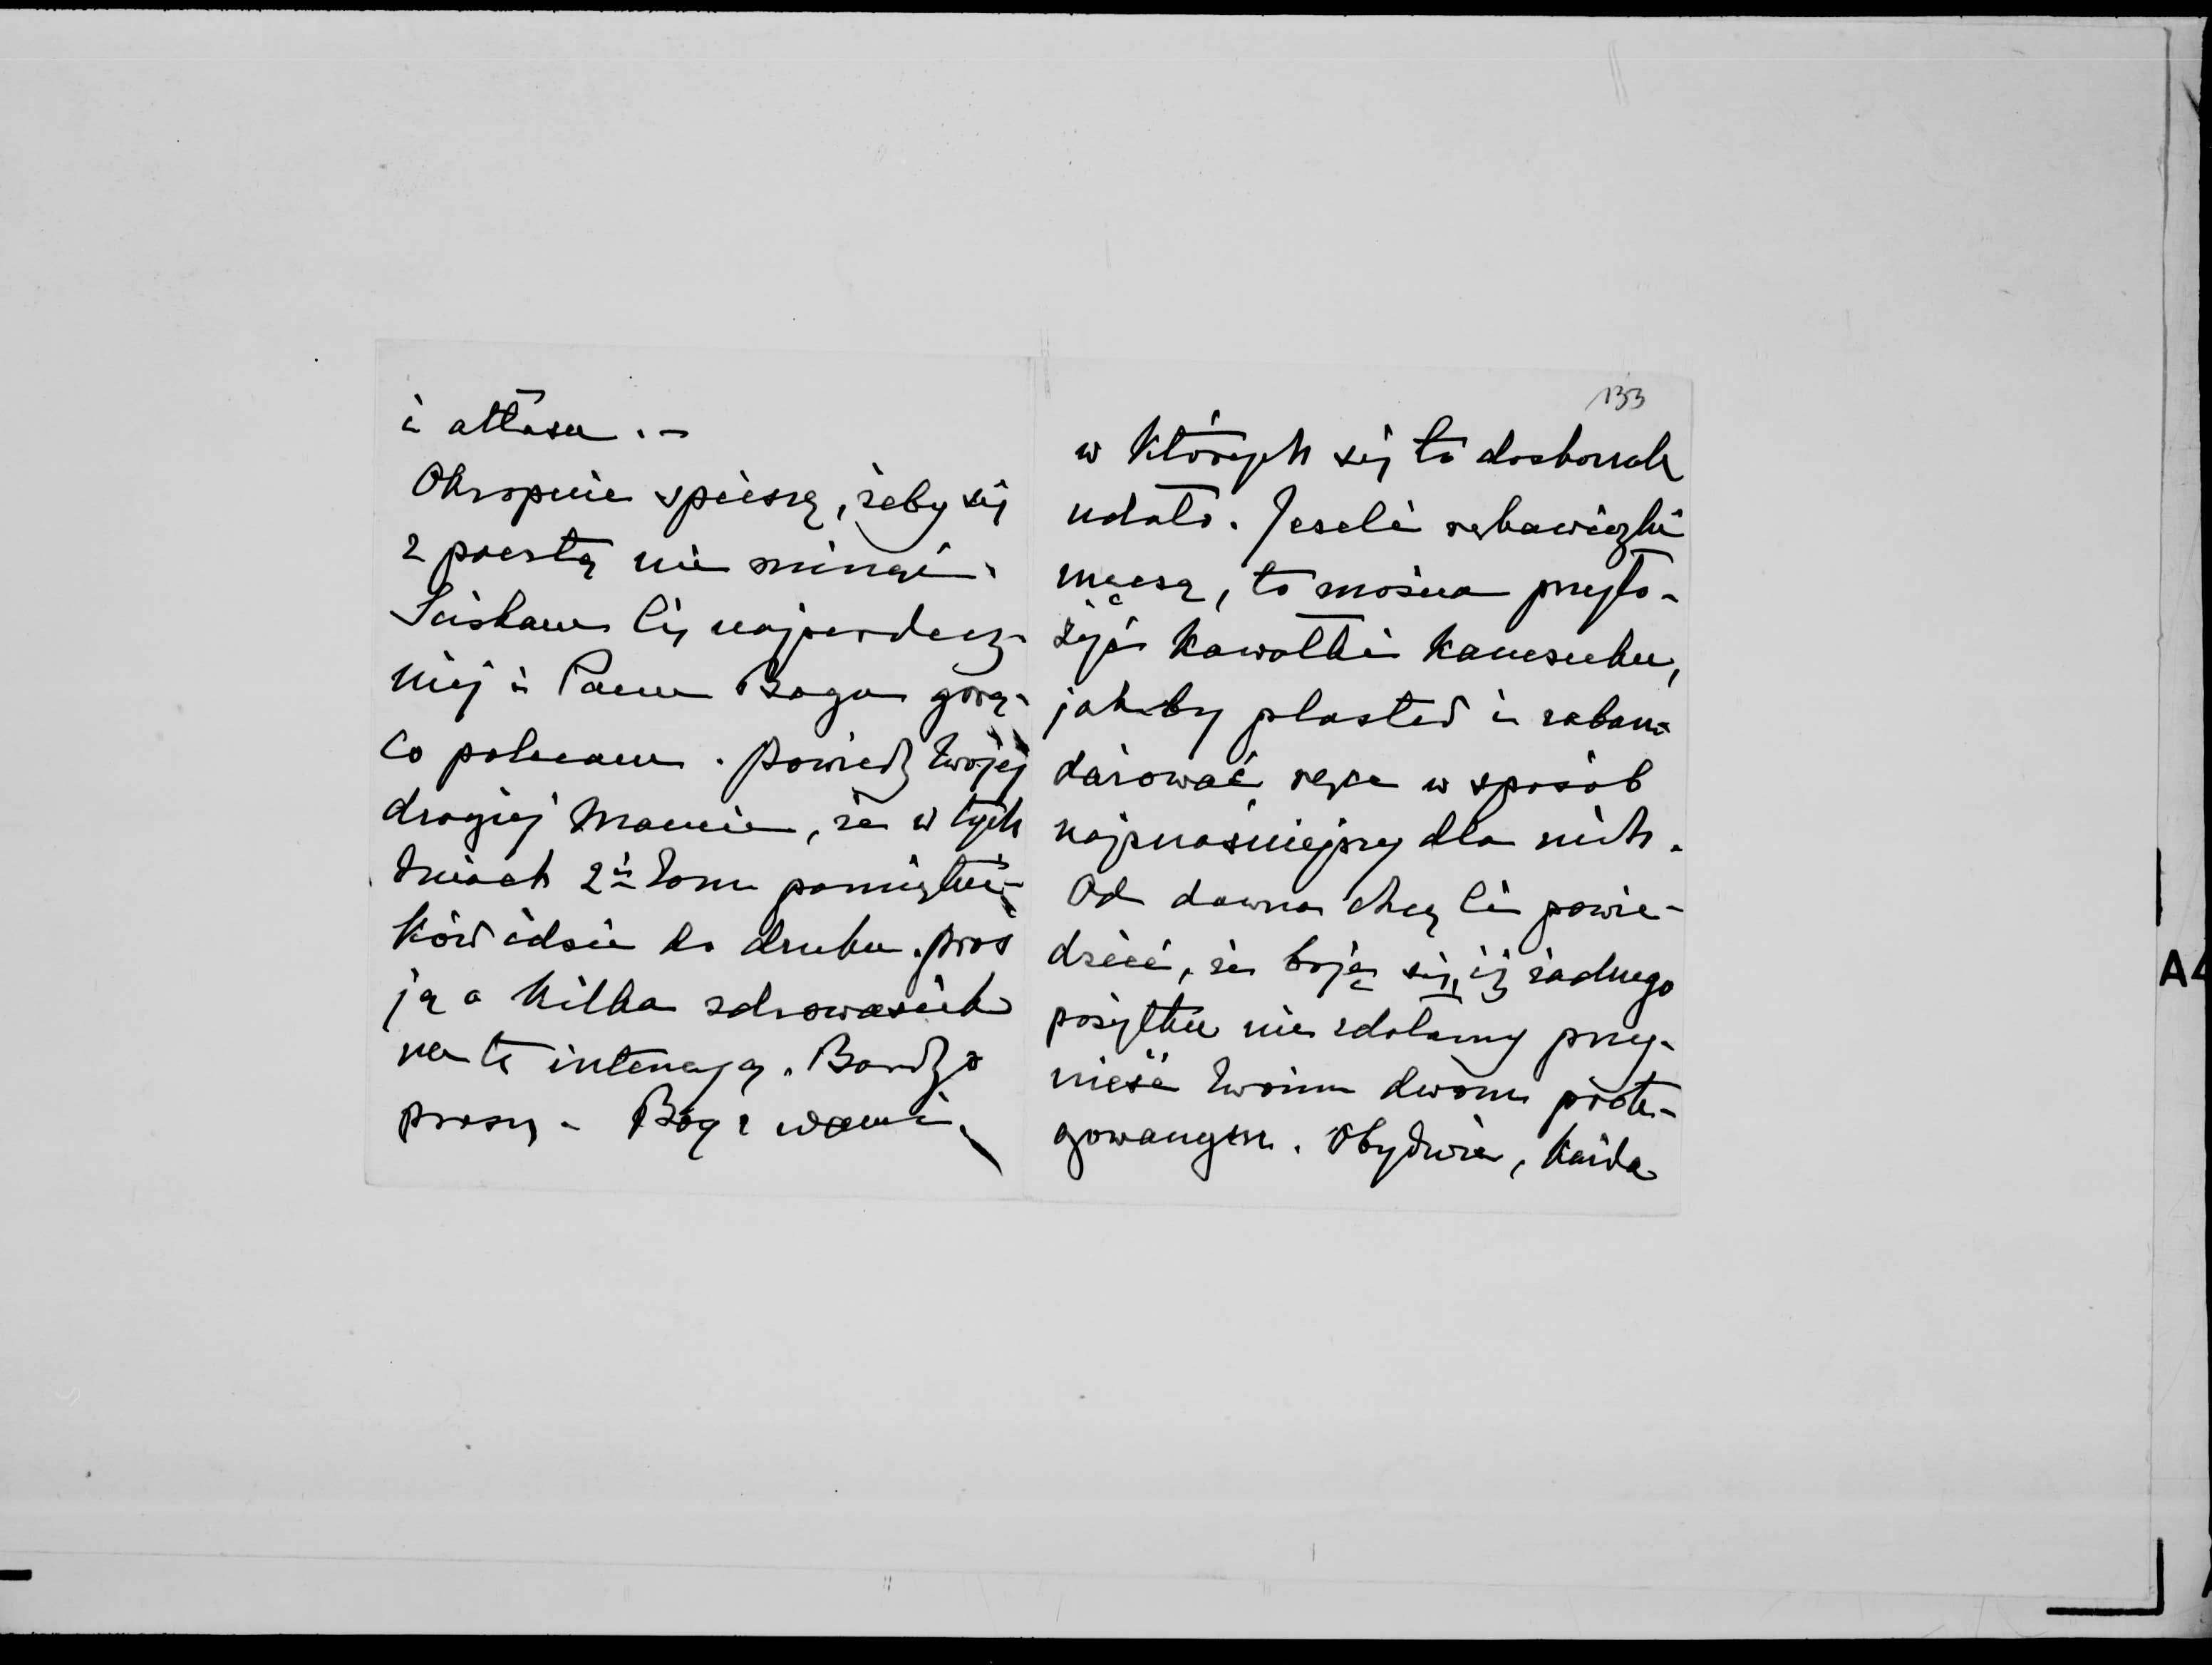 i atłasu. –
Okropnie spieszę, żeby się
z pocztą nie minąć.
Ściskam Cię najserdecz-
niej i Panu Bogu gorą-
co polecam. Powiedz Twojej
drogiej Mamie, że w tych
dniach 2i tom pamiętni-
ków idzie do druku. Proś
ją o kilka zdrowasiek
na tę intencyą. Bardzo
proszę – Bóg z wami.
133
w których się to doskonale
udało. Jeżeli rękawiczki
męczą, to można przyło-
żyć kawałki kauczuku,
jakby plasted i zaban-
dażować ręce w sposób
najznośniejszy dla nich.
Od dawna chcę Ci powie-
dzieć, że boję się, iż żadnego
pożytku nie zdołamy przy-
nieść Twoim dwom prote-
gowanym. Obydwie, każda
A4